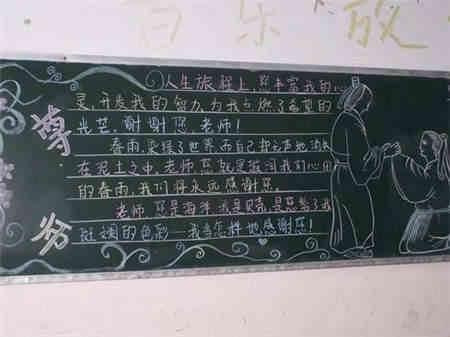 百乐放
尊
师
人生旅程上,您丰富我的心
灵,开发我的智力,为我点燃了希望的
光芒,谢谢您,老师!
春雨,染绿了世界,而自己却无声地消失
在泥土之中,老师,您就是滋润我们心田
的春雨,我们将永远感谢您。
老师,您是海洋,我是贝壳,是您给了我
斑斓的色彩……我当怎样地感谢您!